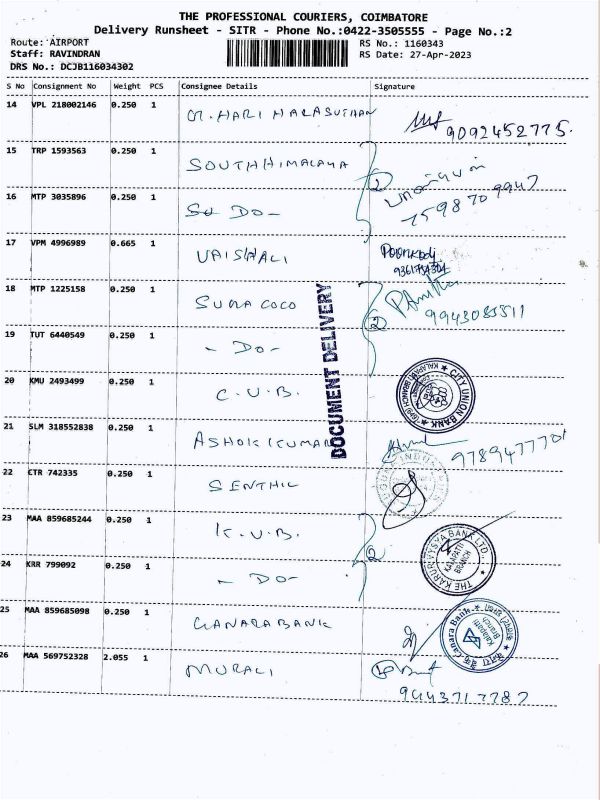 THE PROFESSIONAL COURIERS, COIMBATORE
Delivery Runsheet - SITR - Phone No.:0422-3505555 - Page No.:2
Route: AIRPORT RS No.: 1160343
Staff: RAVINDRAN RS Date: 27-Apr-2023
DRS No.: DCJB116034302
S No Consignment No Weight PCS Consignee Details Signature
14 VPL 218002146 0.250 1 M. HARI HARASUTHAN 9092452775.
15 TRP 1593563 0.250 1 SOUTH HIMALAYA
16 MTP 3035896 0.250 1 Do - 2 7598709947
17 VPM 4996989 0.665 1 VAISHALI Poonkodi
18 MTP 1225158 0.250 1 SUNA COCO 2 9943083511
19 TUT 6440549 0.250 1 - Do -
DOCUMENT DELIVERY
20 KMU 2493499 0.250 1 C.U.B. CITY UNION BANK
21 SLM 318552838 0.250 1 ASHOK KUMAR
22 CTR 742335 0.250 1 SENTHIL
23 MAA 859685244 0.250 1 K.V.B. 2
24 KRR 799092 0.250 1 - DO - THE KARUR VYSYA BANK LTD., KALAPATTI BRANCH
25 MAA 859685098 0.250 1 CANARA BANK Canara Bank Kalapatti Branch
26 MAA 569752328 2.055 1 MURALI